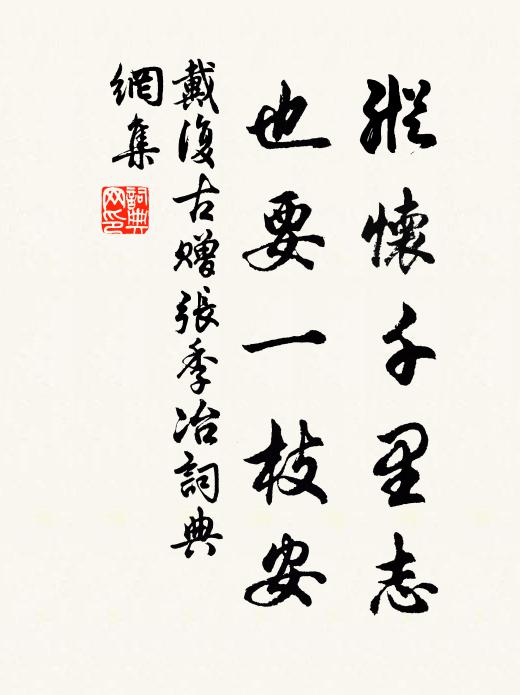 縱懷千里志
也要一枝安
戴復古贈張季冶詞典
網集
詞典
网印